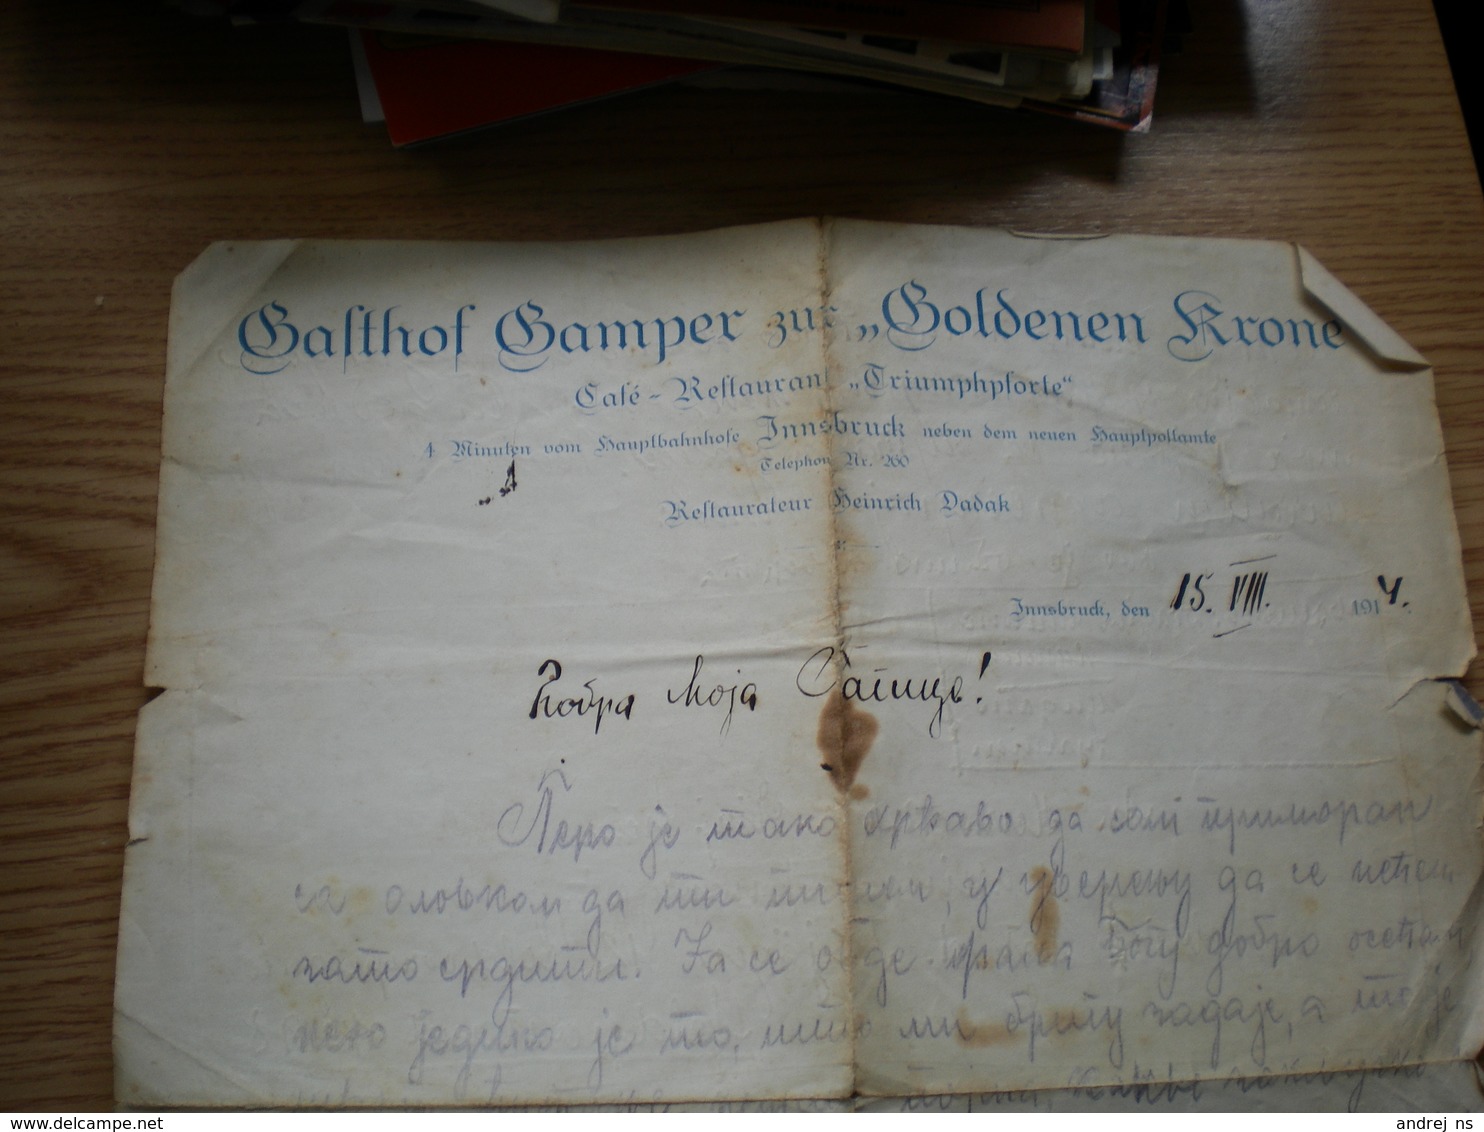 Gasthof Gamper zur „Goldenen Krone
Café - Restaurant „Triumphpforte“
4 Minuten vom Hauptbahnhofe Innsbruck neben dem neuen Hauptpostamte
Telephon Nr. 260
Restaurateur Heinrich Dadak
Innsbruck, den 15. VIII. 1914.
Добра Моја
Перо је тако да сам приморан
са оловком да ти пишем, у уверењу да се нећеш
зато срдити. Ја се овде фала Богу добро осећам
него једино је то, што ми бригу задаје, а то је
andrej_ns